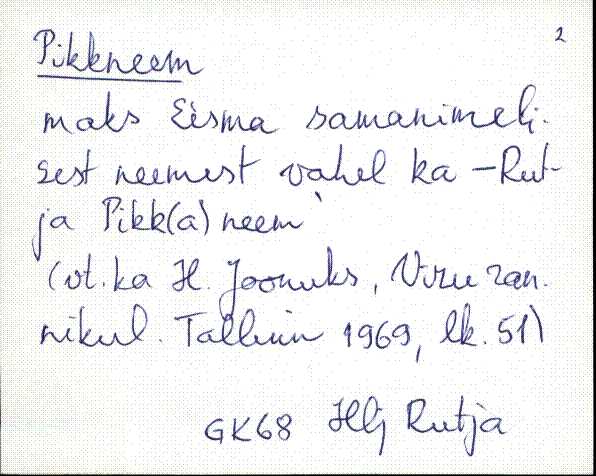 2
Pikkneem
maks Eisma samanimeli-
sest neemest vahel ka – Rut-
ja Pikk(a)neem
(vt. ka H. Joonuks, Viru ran-
nikul. Tallinn 1969, lk. 51)
GK68 Hlj Rutja